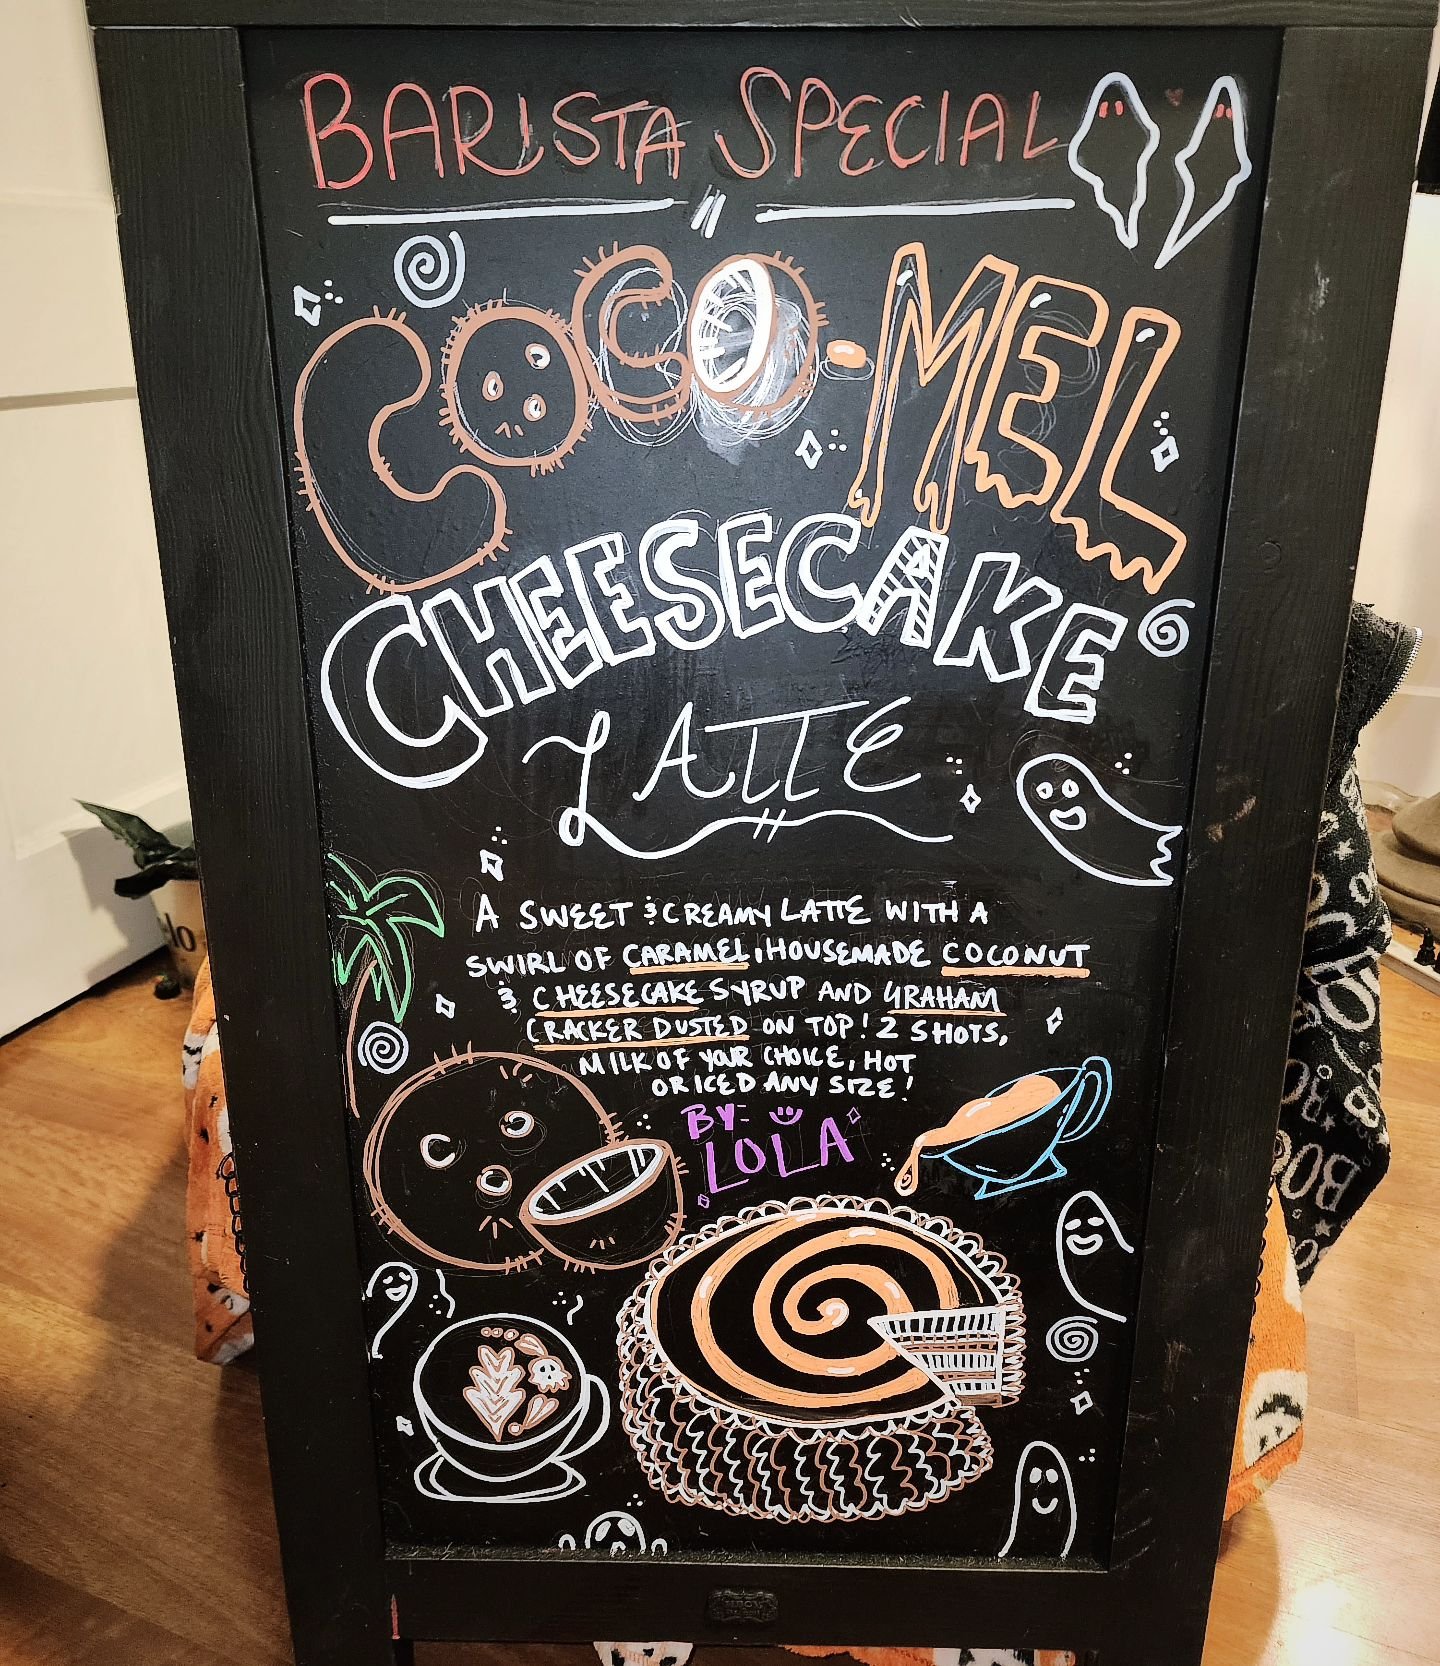 BARISTA SPECIAL
COCO-MEL
CHEESECAKE
LATTE
A SWEET & CREAMY LATTE WITH A
SWIRL OF CARAMEL, HOUSEMADE COCONUT
& CHEESECAKE SYRUP AND GRAHAM
CRACKER DUSTED ON TOP! 2 SHOTS,
MILK OF YOUR CHOICE, HOT
OR ICED ANY SIZE!
BY:
LOLA
lo
BOO